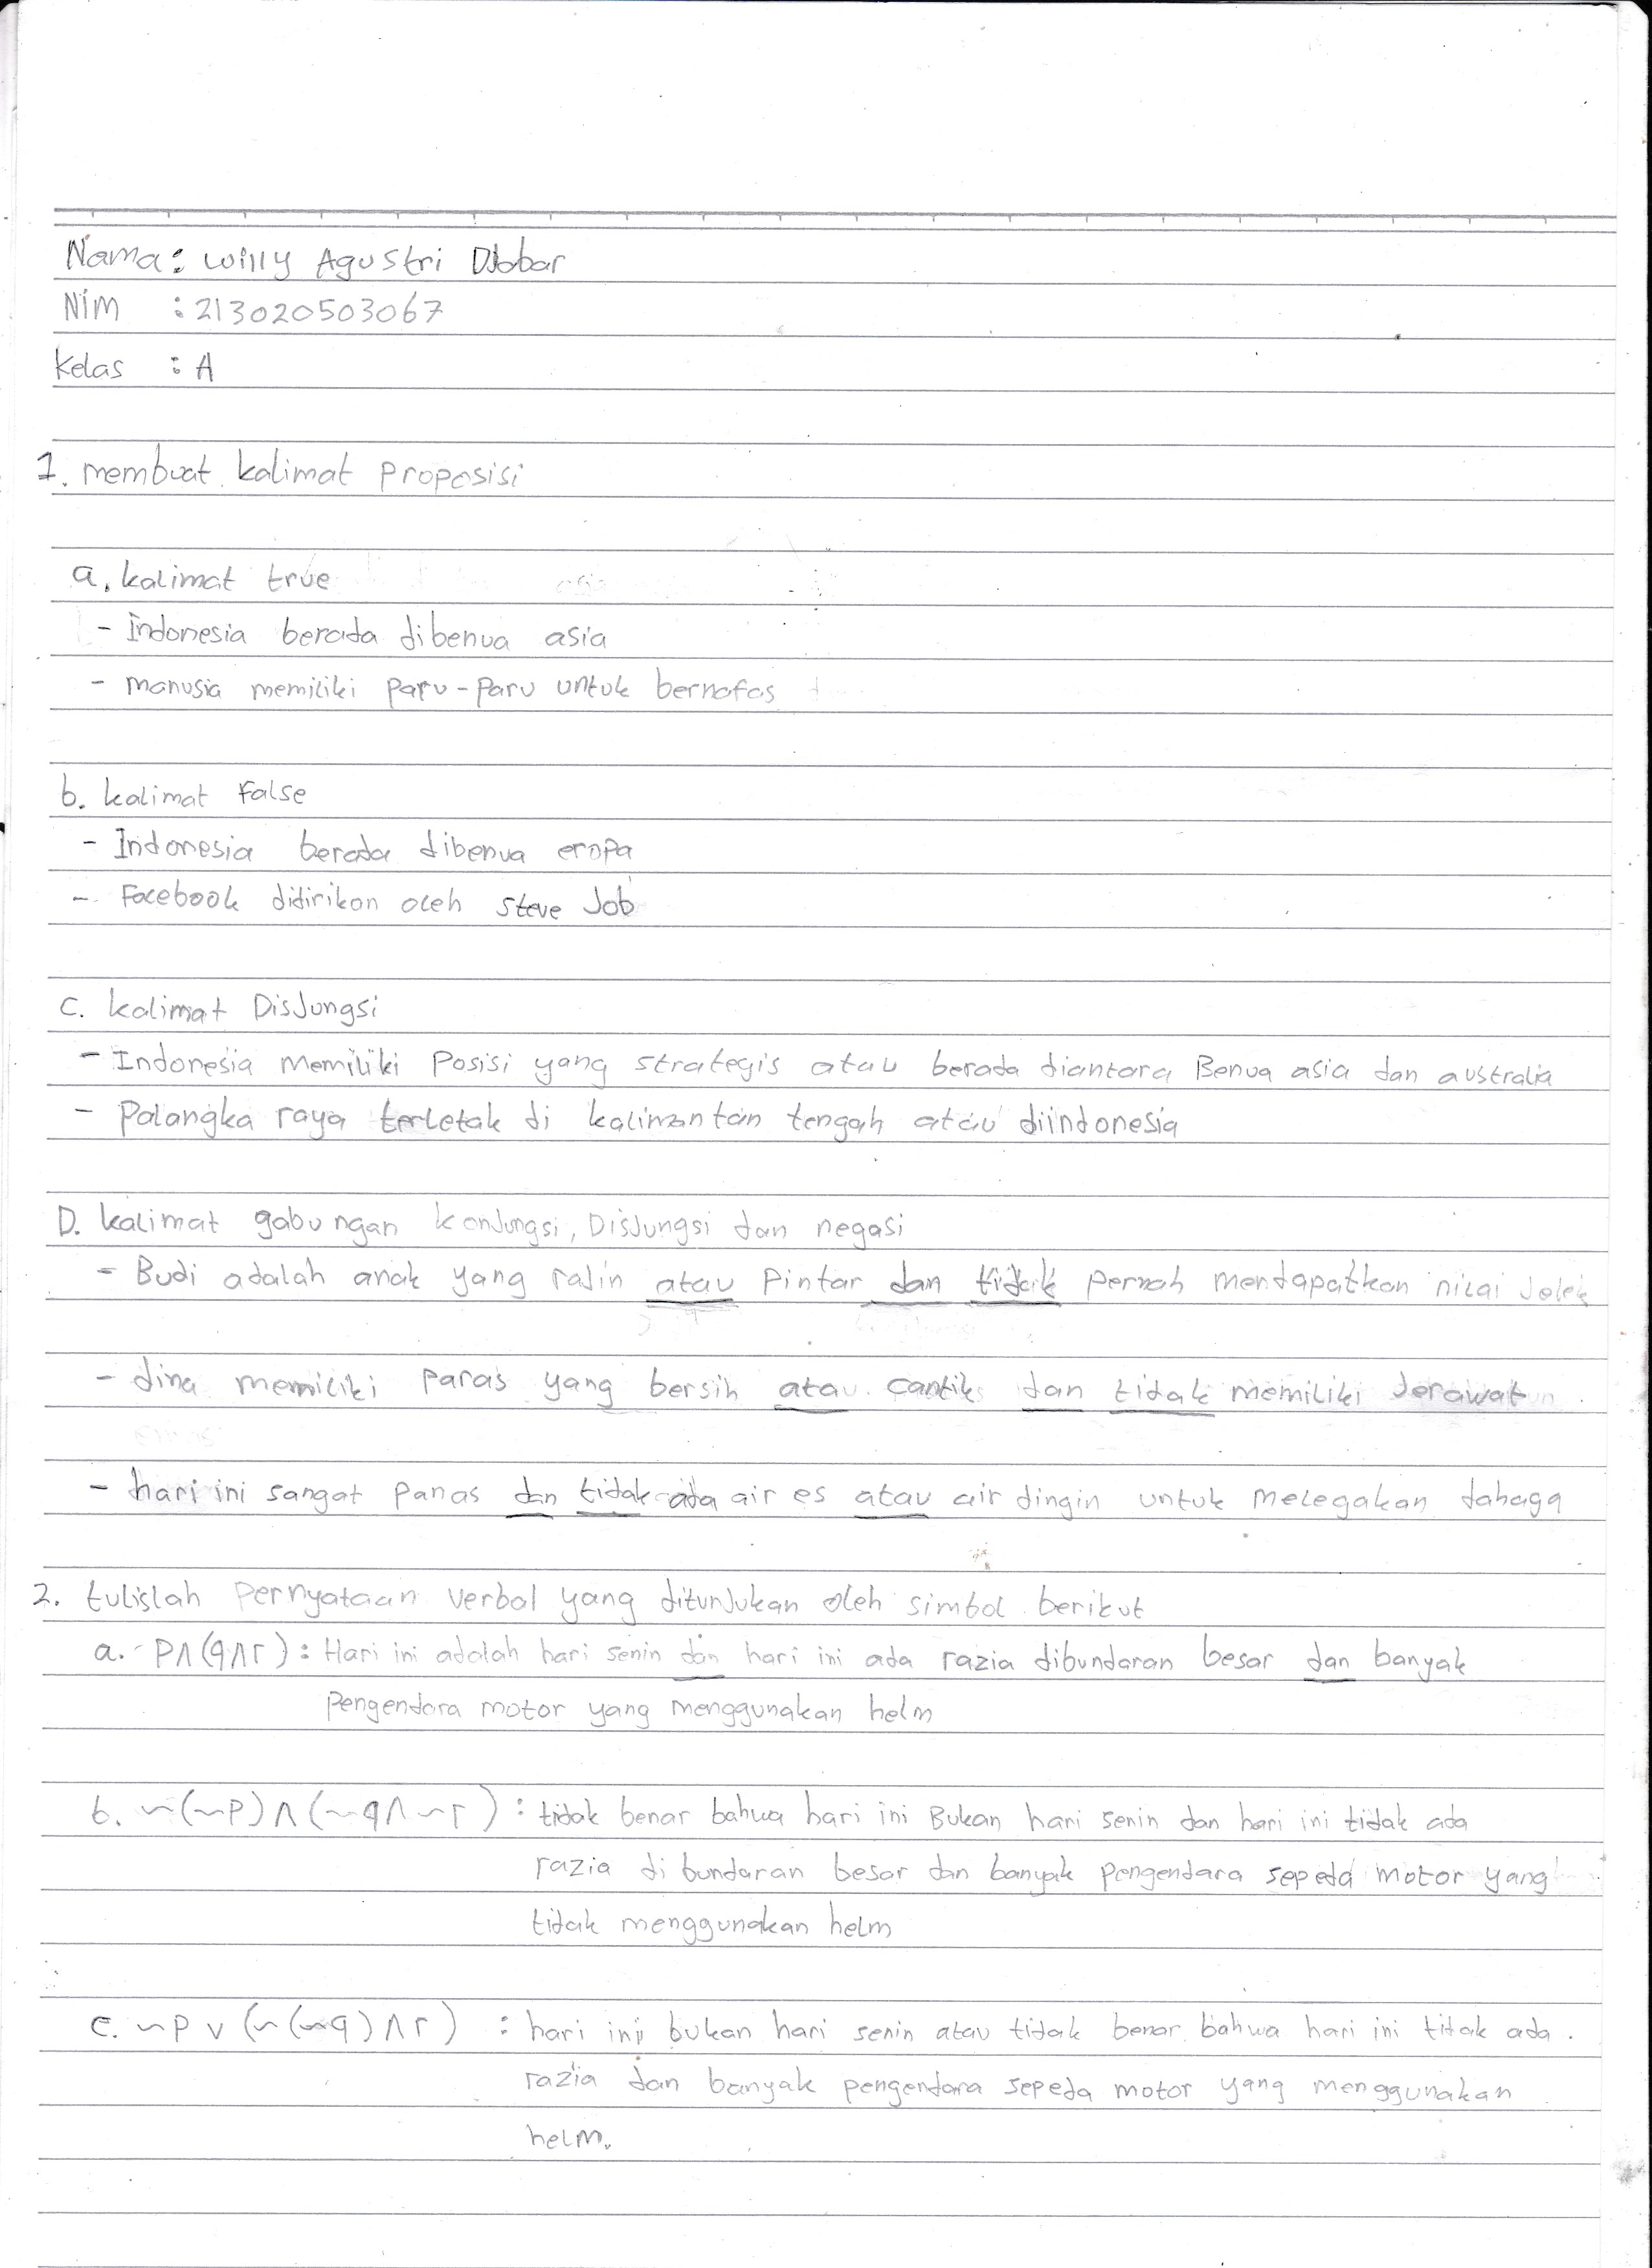 Nama : Willy Agustri Djabar
NIM : 213020503067
Kelas : A
1. membuat kalimat proposisi
a. kalimat true
- Indonesia berada dibenua asia
- manusia memiliki paru-paru untuk bernafas
b. kalimat False
- Indonesia berada dibenua eropa
- Facebook didirikan oleh steve Job
C. kalimat DisJungsi
- Indonesia memiliki Posisi yang strategis atau berada diantara Benua asia dan australia
- Palangka raya terletak di kalimantan tengah atau diindonesia
D. kalimat gabungan konJungsi, DisJungsi dan negasi
- Budi adalah anak yang raJin atau Pintar dan tidak pernah mendapatkan nilai Jelek
- dina memiliki paras yang bersih atau cantik dan tidak memiliki Jerawat
- hari ini sangat panas dan tidak ada air es atau air dingin untuk melegakan dahaga
2. tulislah pernyataan verbal yang ditunJukan oleh simbol berikut
a. P∧(q∧r) : Hari ini adalah hari senin dan hari ini ada razia dibundaran besar dan banyak
pengendara motor yang menggunakan helm
b. ~(~P)∧(~q∧~r) : tidak benar bahwa hari ini Bukan hari senin dan hari ini tidak ada
razia di bundaran besar dan banyak pengendara sepeda motor yang
tidak menggunakan helm
c. ~P∨(~(~q)∧r) : hari ini bukan hari senin atau tidak benar bahwa hari ini tidak ada
razia dan banyak pengendara sepeda motor yang menggunakan
helm.